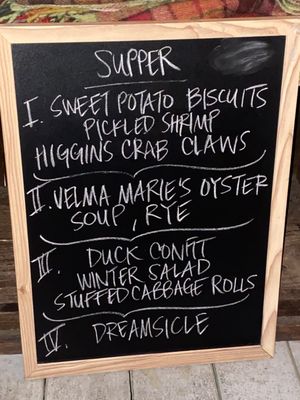 SUPPER
I. SWEET POTATO BISCUITS
PICKLED SHRIMP
HIGGINS CRAB CLAWS
II. VELMA MARIE'S OYSTER
SOUP, RYE
III. DUCK CONFIT
WINTER SALAD
STUFFED CABBAGE ROLLS
IV. DREAMSICLE